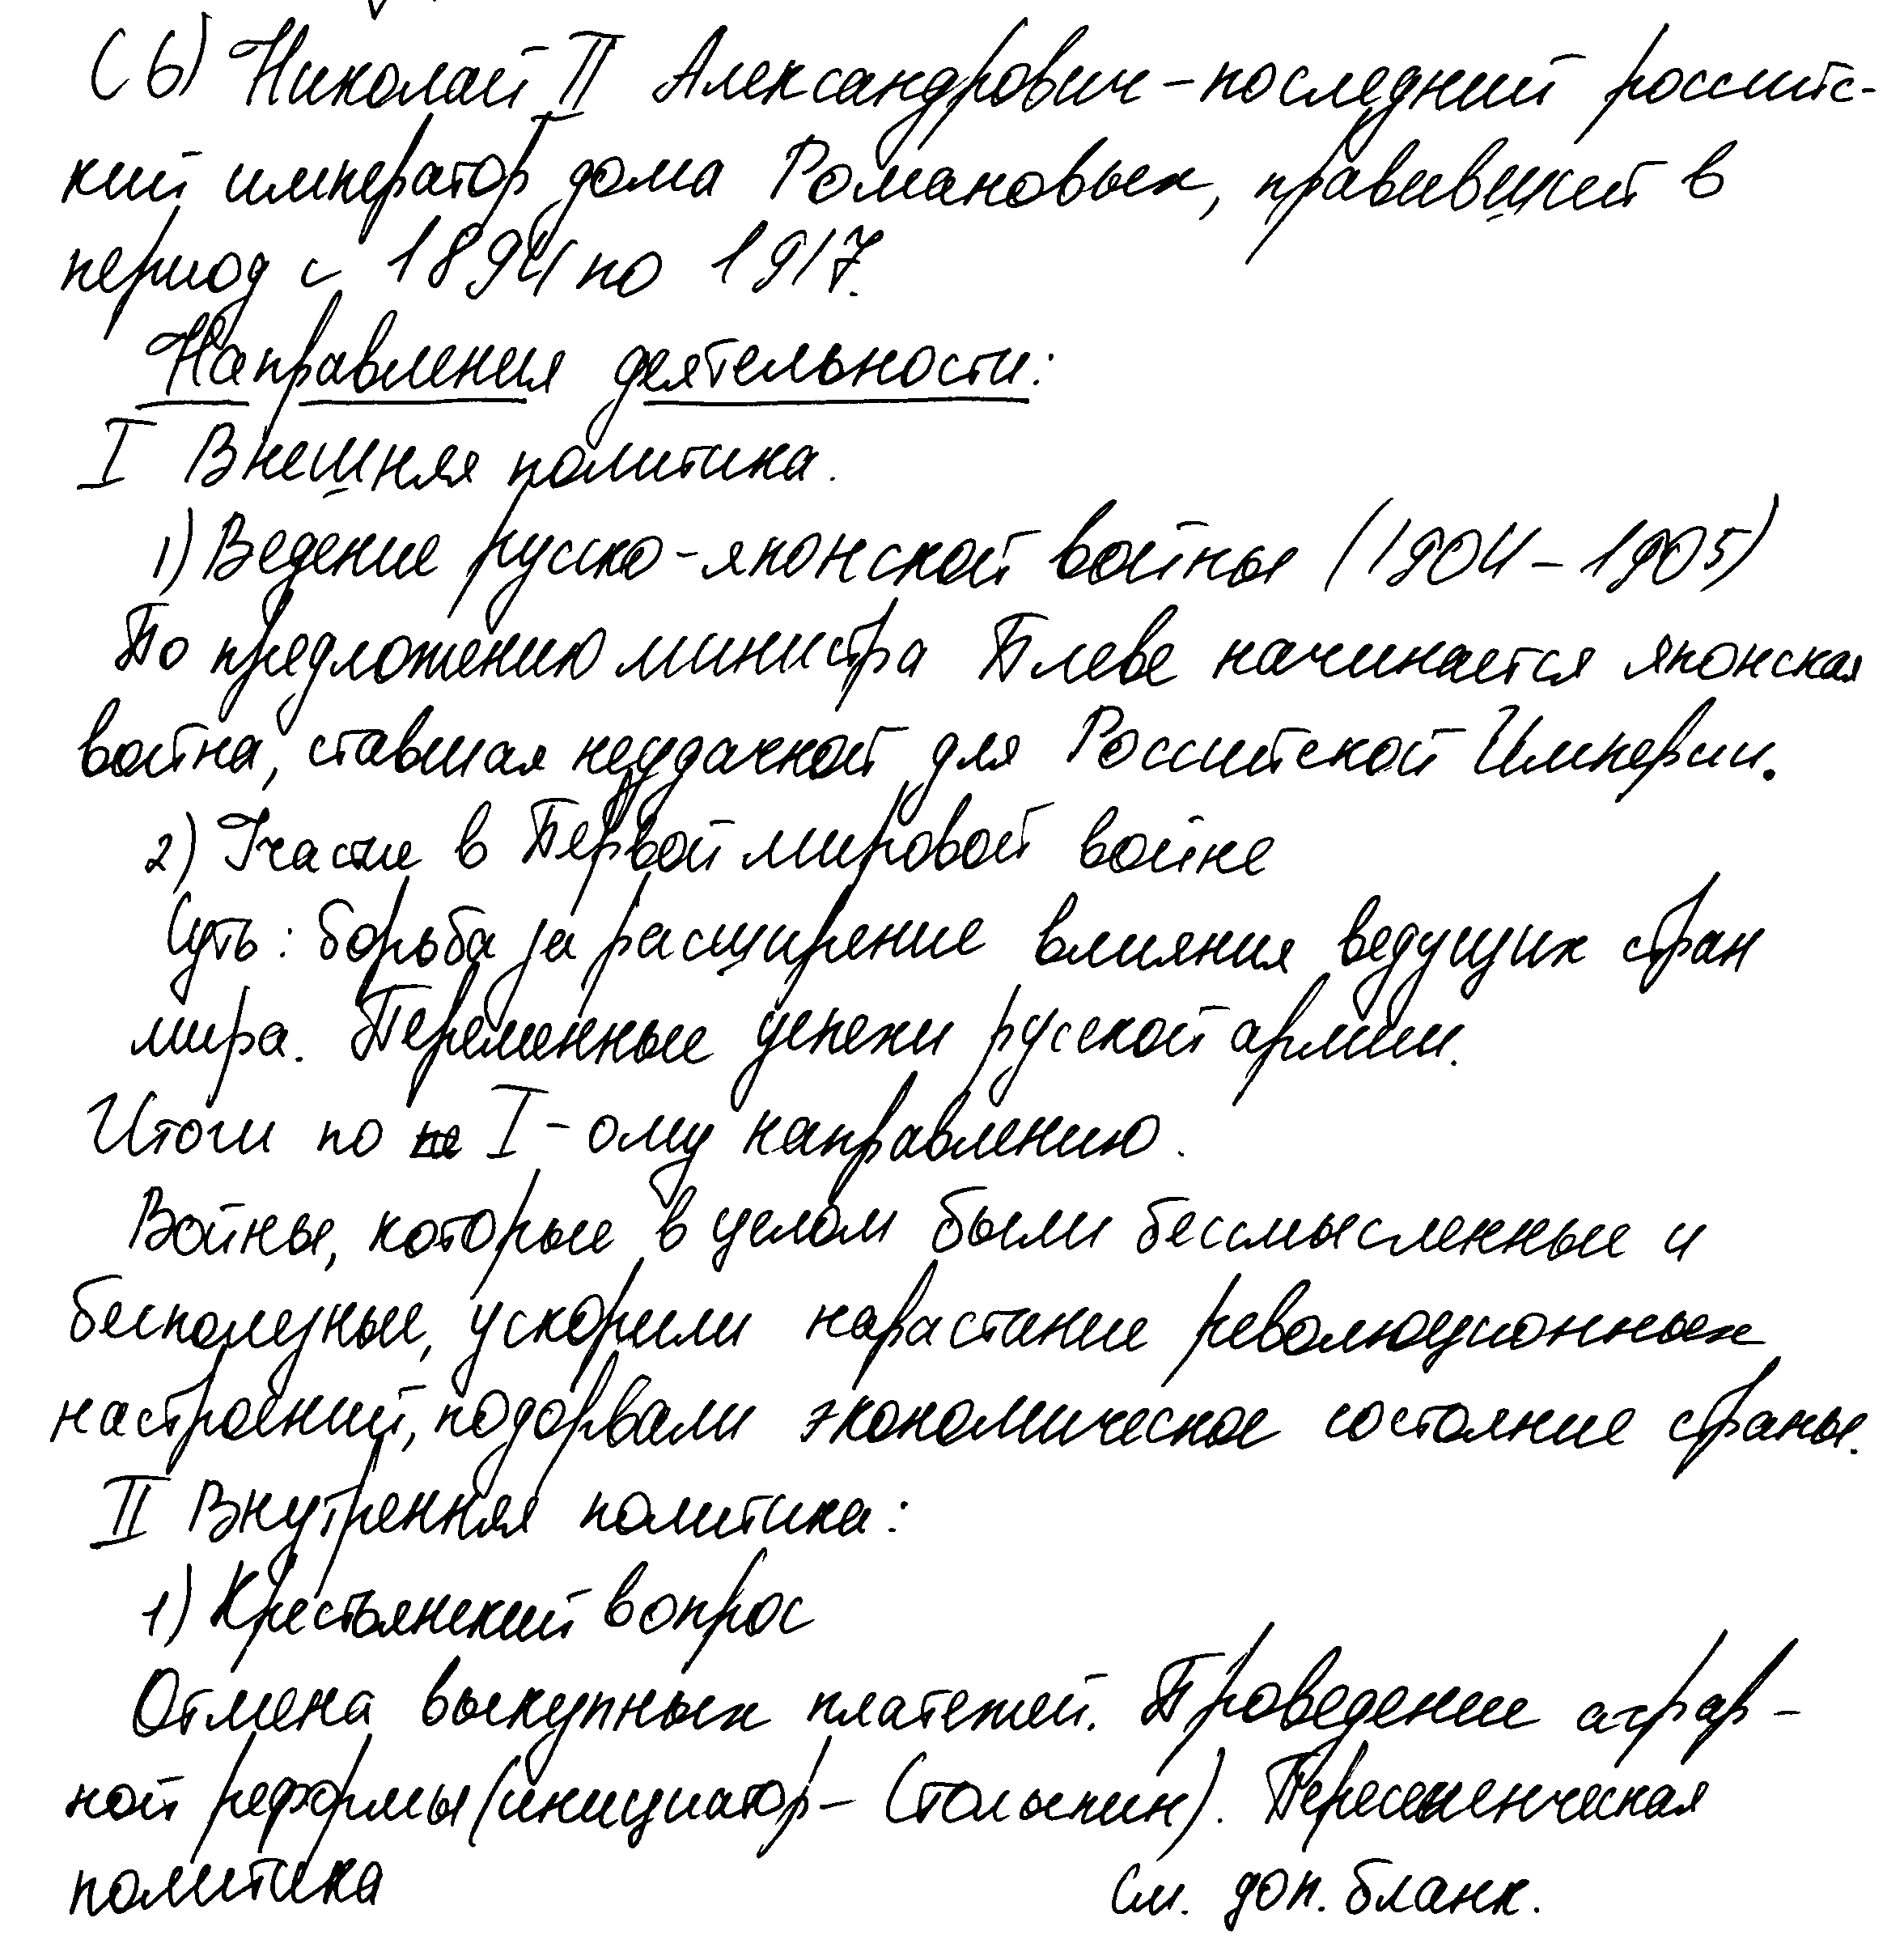 С6) Николай II Александрович - последний россий-
ский император дома Романовых, правивший в
период с 1894 по 1917.
Направления деятельности:
I Внешняя политика.
1) Ведение русско-японской войны (1904-1905)
По предложению министра Плеве начинается японская
война, ставшая неудачной для Российской Империи.
2) Участие в Первой мировой войне
Суть: борьба за расширение влияния ведущих стран
мира. Переменные успехи русской армии.
Итоги по I-ому направлению.
Войны, которые в целом были бессмысленные и
бесполезные, ускорили нарастание революционных
настроений, подорвали экономическое состояние страны.
II Внутренняя политика:
1) Крестьянский вопрос
Отмена выкупных платежей. Проведение аграр-
ной реформы (инициатор - Столыпин). Переселенческая
политика см. доп. бланк.